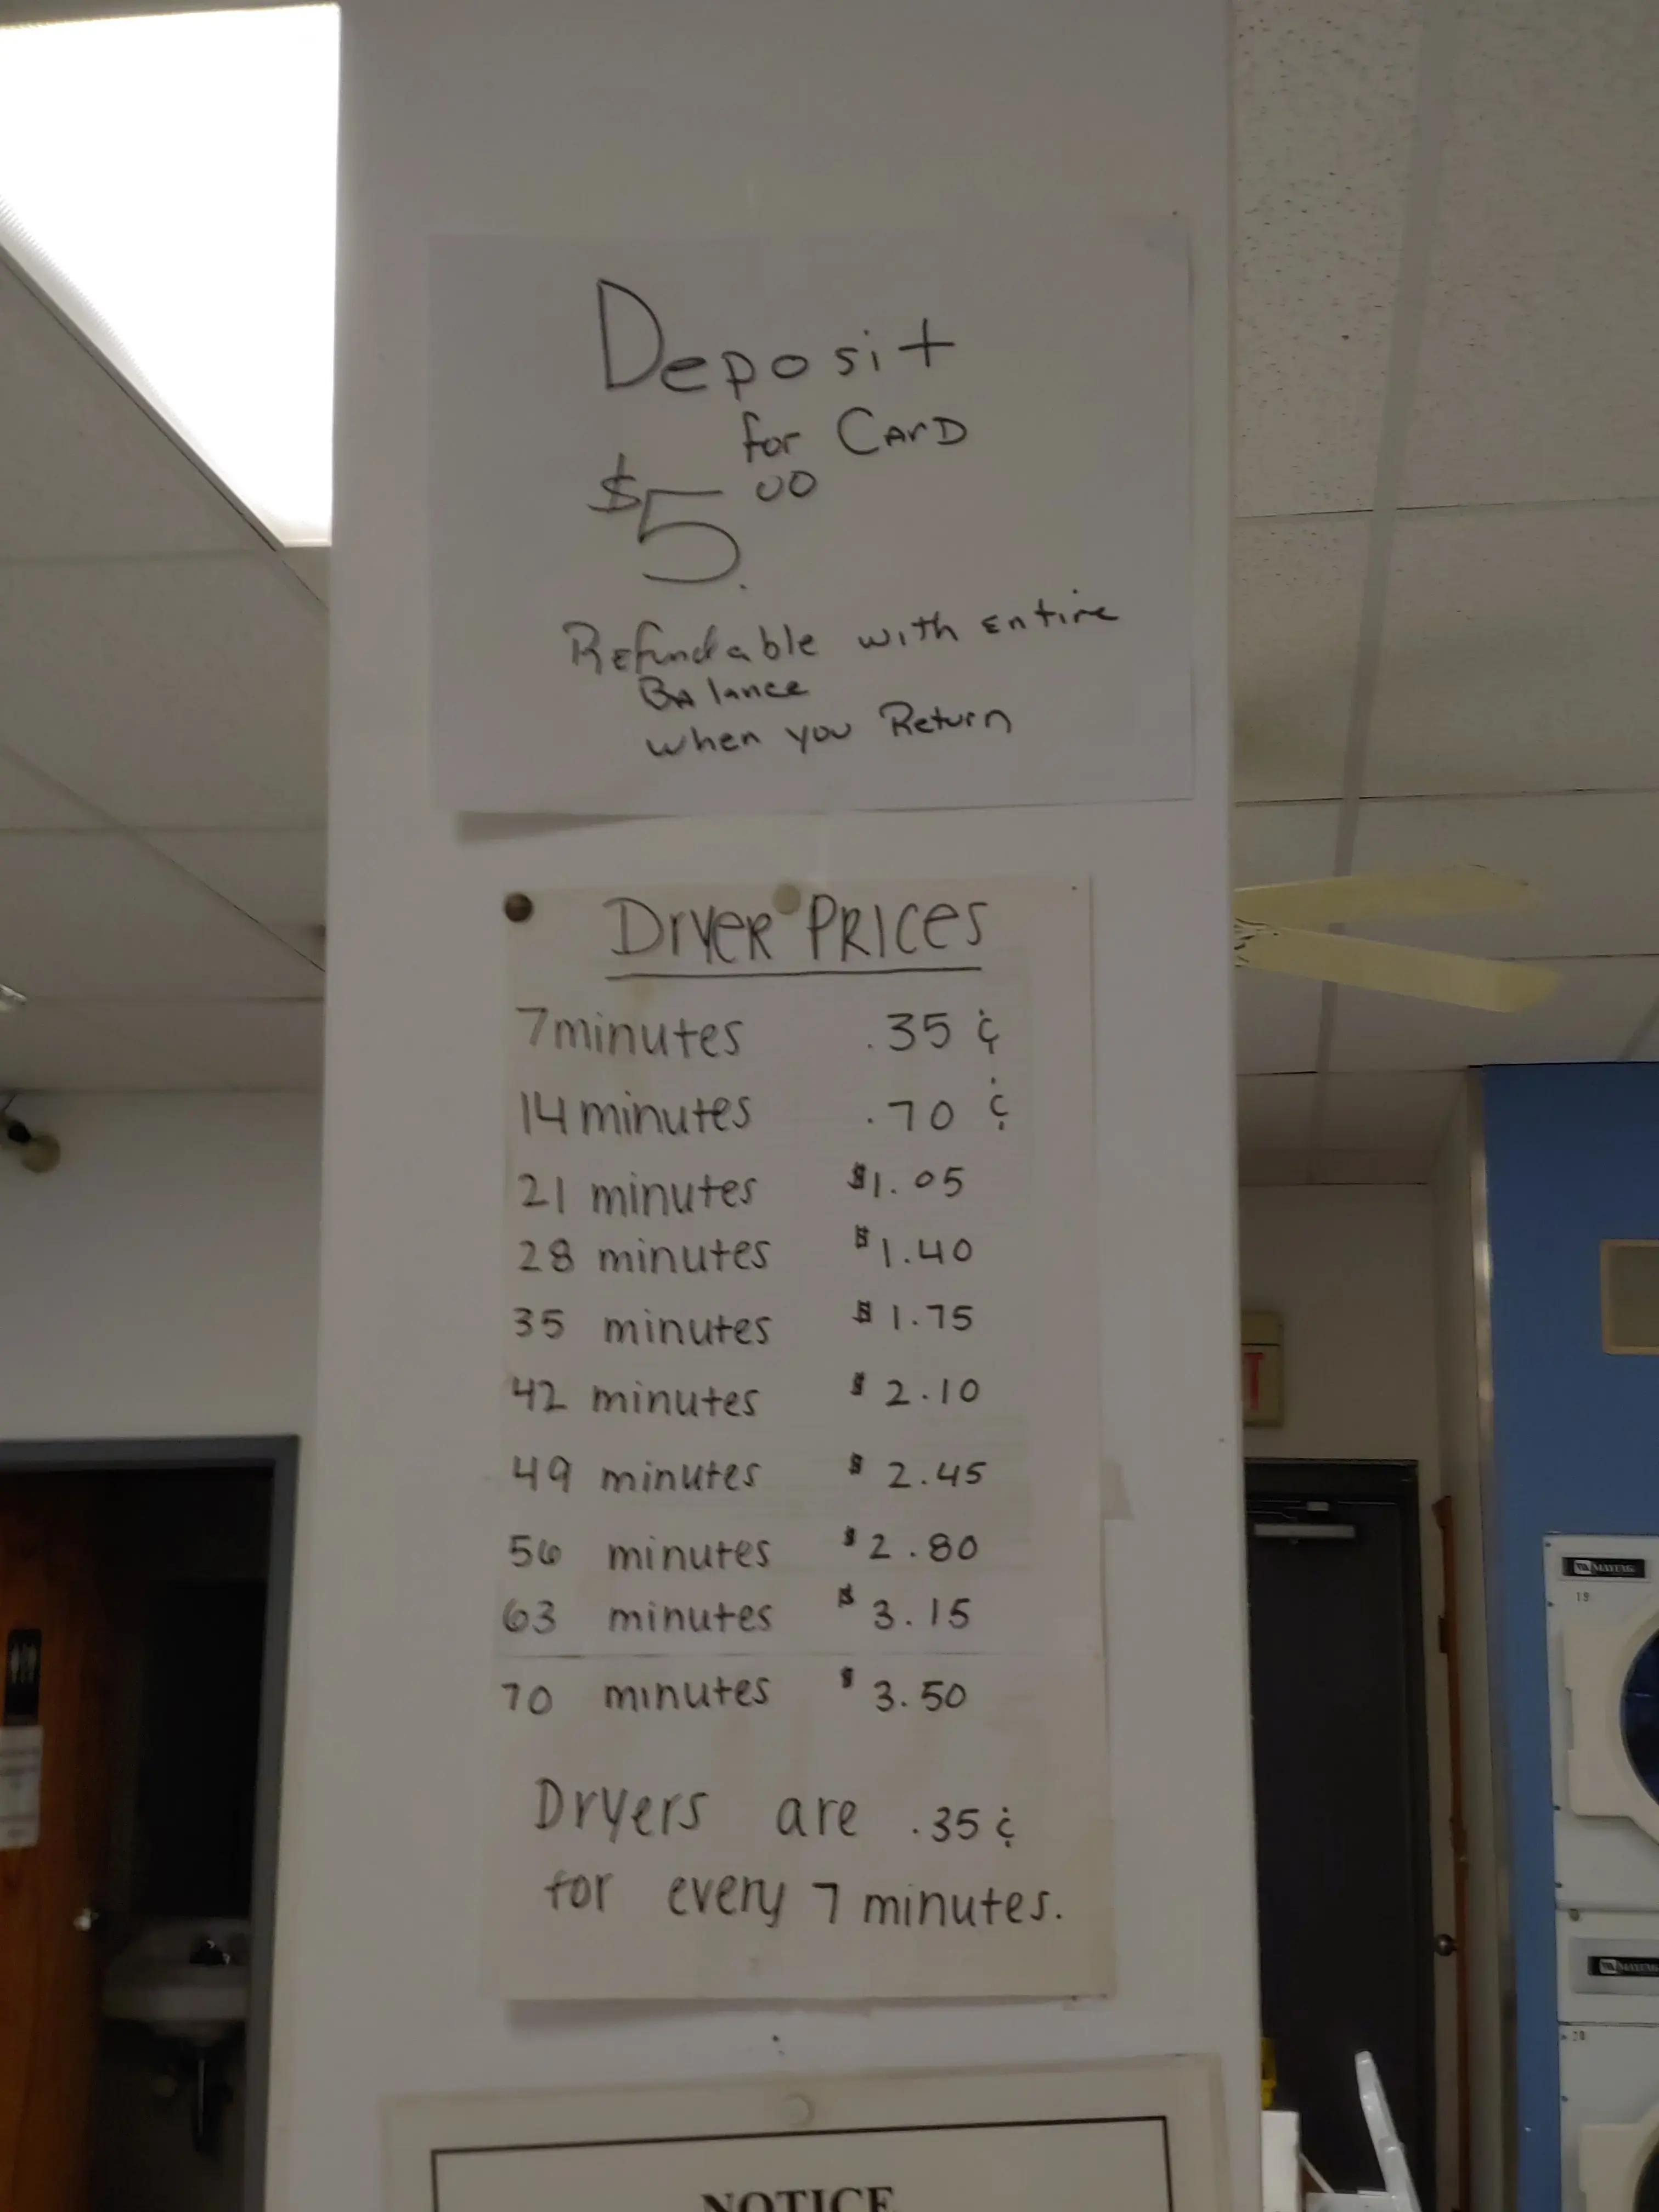 Deposit
for CARD
$5.00
Refundable with entire
Balance
when you Return
DRYER PRICES
7 minutes .35 ¢
14 minutes .70 ¢
21 minutes $1.05
28 minutes $1.40
35 minutes $1.75
42 minutes $2.10
49 minutes $2.45
56 minutes $2.80
63 minutes $3.15
70 minutes $3.50
Dryers are .35 ¢
for every 7 minutes.
NOTICE
MAYTAG
19
MAYTAG
20